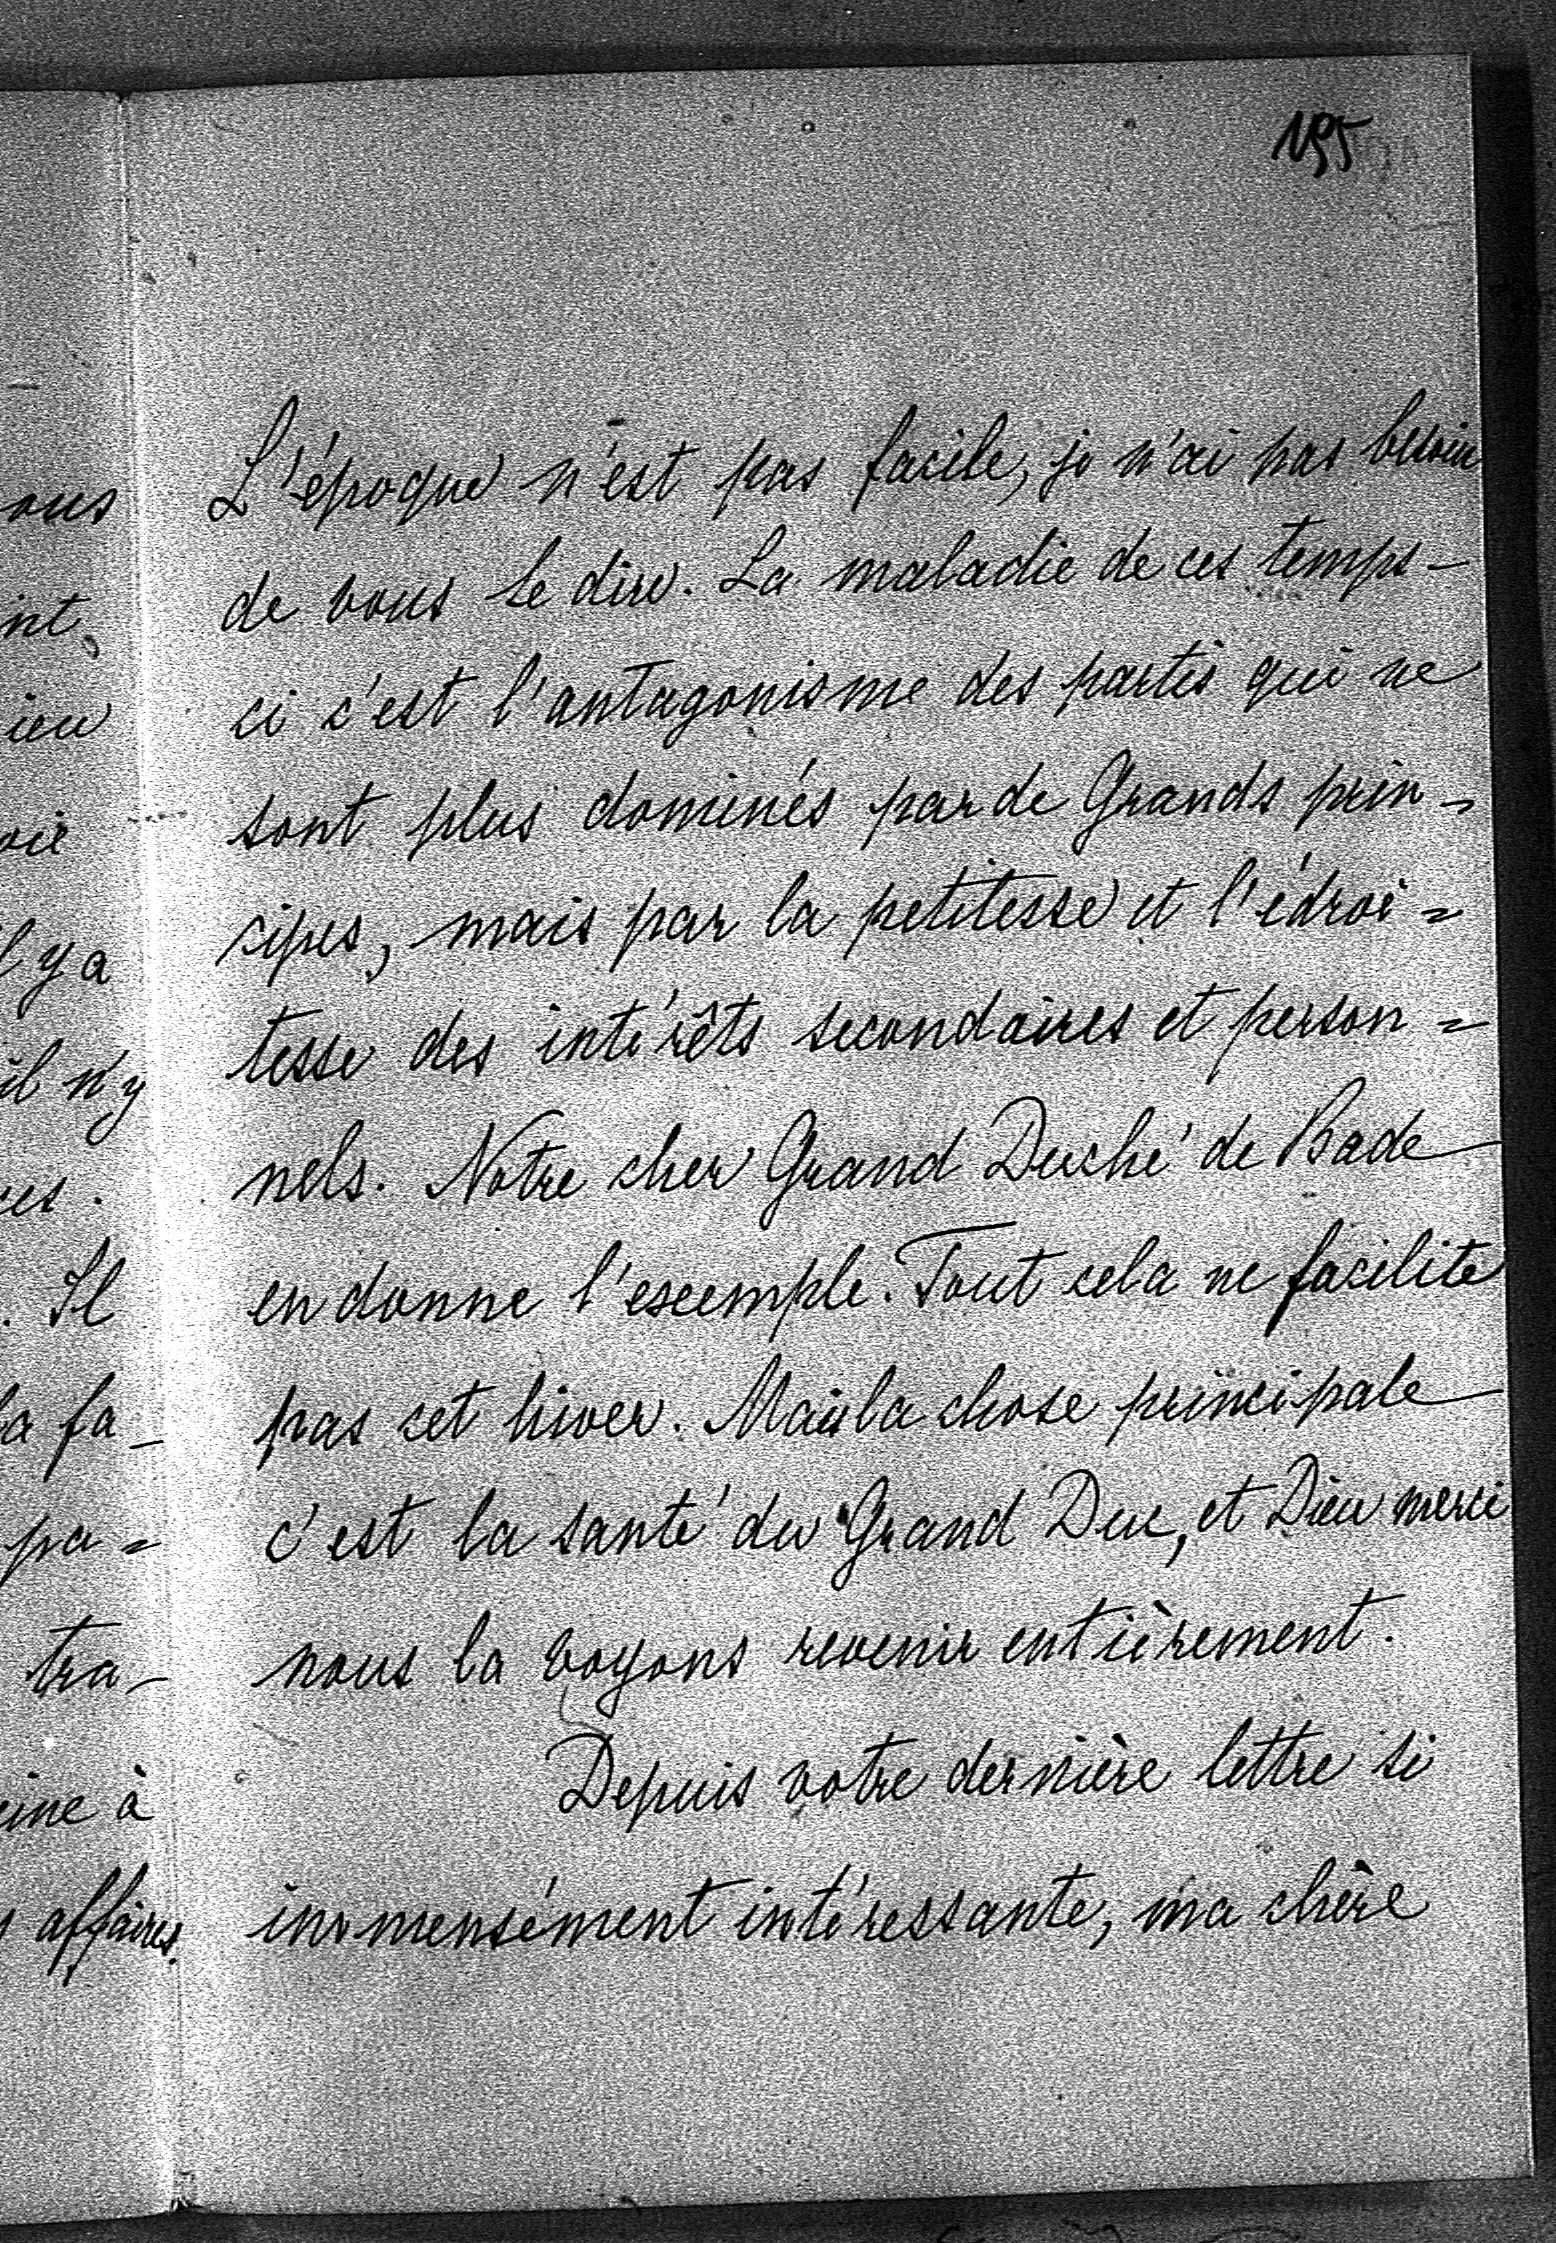 195
L'époque n'est pas facile, je n'ai pas besoin
de vous le dire. La maladie de ces temps-
ci c'est l'antagonisme des partis qui ne
sont plus dominés par de Grands prin=
cipes, mais par la petitesse et l'édroi=
tesse des intérêts secondaires et person=
nels. Notre cher Grand Duché de Bade
en donne l'escemple. Tout cela ne facilite
pas cet hiver. Mais la chose principale
c'est la santé du Grand Duc, et Dieu merci
nous la voyons revenir entièrement.
Depuis votre dernière lettre si
immensément intéressante, ma chère
ous
int
ieu
oir
l y a
il n'y
ces.
. Il
la fa-
pa=
tra-
eine à
affaires.